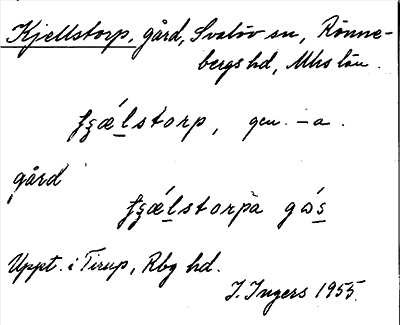 Kjellstorp, gård, Svalöv sn, Rönne-
bergs hd, Mhs län.
fʒǽlstorp, gen. -a.
gård
fʒǽlstorpa gɷ́s
Uppt. i Tirup, Rbg hd.
I. Ingers 1955.